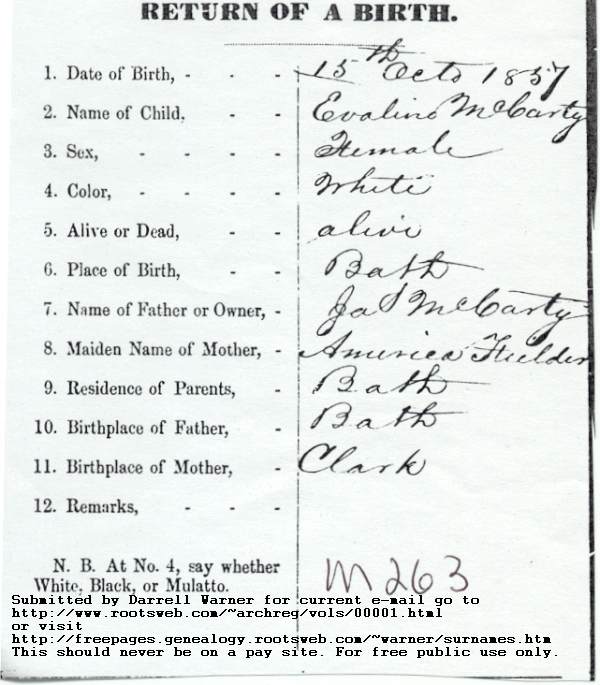 RETURN OF A BIRTH.
1. Date of Birth, - - - 15th Octo 1857
2. Name of Child, - - Evaline McCarty
3. Sex, - - - - Female
4. Color, - - - - White
5. Alive or Dead, - - alive
6. Place of Birth, - - Bath
7. Name of Father or Owner, - Jas McCarty
8. Maiden Name of Mother, - America Fielder
9. Residence of Parents, - Bath
10. Birthplace of Father, - Bath
11. Birthplace of Mother, - Clark
12. Remarks, - - -
N. B. At No. 4, say whether
White, Black, or Mulatto.
M263
Submitted by Darrell Warner for current e-mail go to
http://www.rootsweb.com/~archreg/vols/00001.html
or visit
http://freepages.genealogy.rootsweb.com/~warner/surnames.htm
This should never be on a pay site. For free public use only.